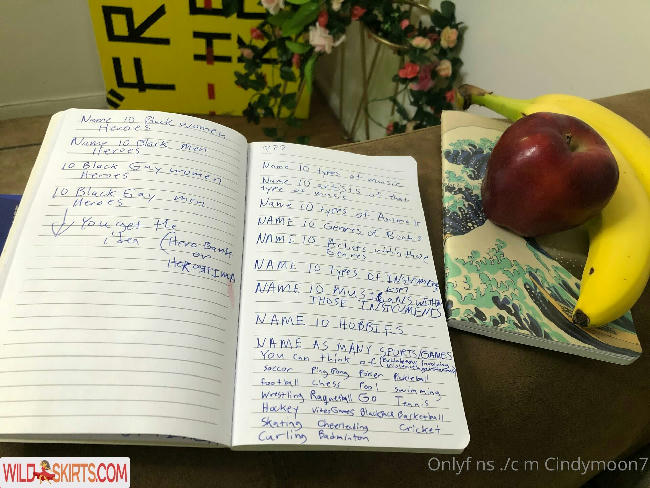 "FR
HE
Name 10 Black women
Heroes
Name 10 Black men
Heroes
10 Black Gay women
Heroes
10 Black Gay men
Heroes
You get the
idea (Hero-Bank
or
???
Name 10 types of music
Name 10 artists of that
type of music
Name 10 types of
NAME 10 Genres of Books
NAME 10 Artists with those
Genres
NAME 10 Types OF
NAME 10 WITH
THOSE
NAME 10 HOBBIES
NAME AS MANY SPORTS/GAMES
You can think of
Soccer Ping Pong Poker
football Chess Pool Swimming
Wrestling GO Tennis
Hockey Basketball
Skating Cheerleading Cricket
Curling Badminton
WILDSKIRTS.COM
Onlyf ns ./c m Cindymoon7